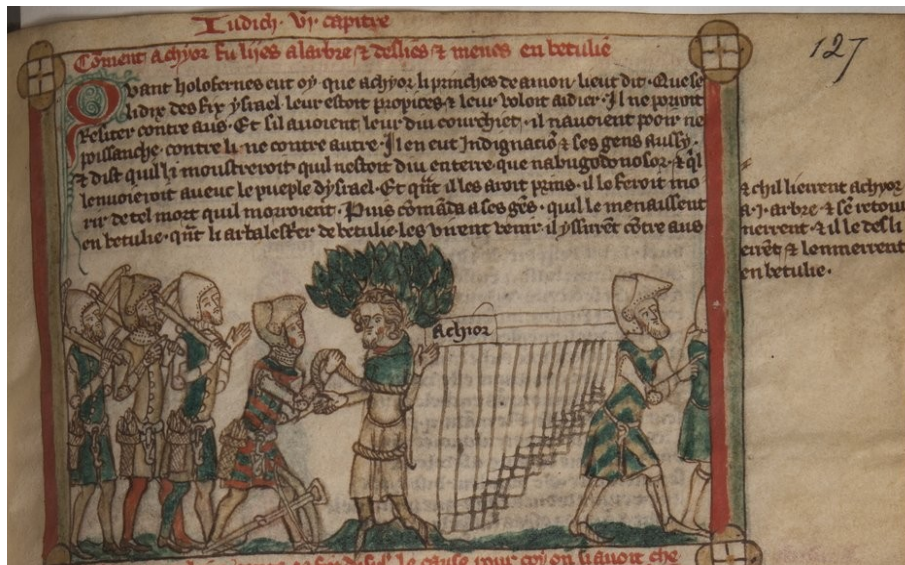 Iudich · vi · capitre
127
Cōment achyor fu lijes a larbre ⁊ deslies ⁊ menes en betulie
Qvant holofernes eut oy que achyor li prinches de amon · lieut dit · Que se
li dix des fix ysrael · leur estoit propices ⁊ leur voloit aidier · Il ne poroit
resister contre aus · Et sil auoient leur diu courchiet · il nauoient pooir ne
poissanche · contre li · ne contre autre · Il en eut Indignaciō ⁊ ses gens aussy ·
⁊ dist quil li moustreroit · quil nestoit diu en terre que nabugodonosor · ⁊ ql
lenuoieroit aueuc le pueple dysrael · Et qn̄t il les aroit prins · il le feroit mo
rir de tel mort quil morroient · Puis cōmāda a ses gēs · quil le menaissent
en betulie · qn̄t li arbalestier de betulie · les virent venir · il yssirēt cōtre aus
⁊ chil lierent achyor
a · j · arbre · ⁊ sē retour
nerrent · ⁊ il le desli
erēt ⁊ lenmerrent
en betulie ·
Achior
le cause pour coy on li auoit che